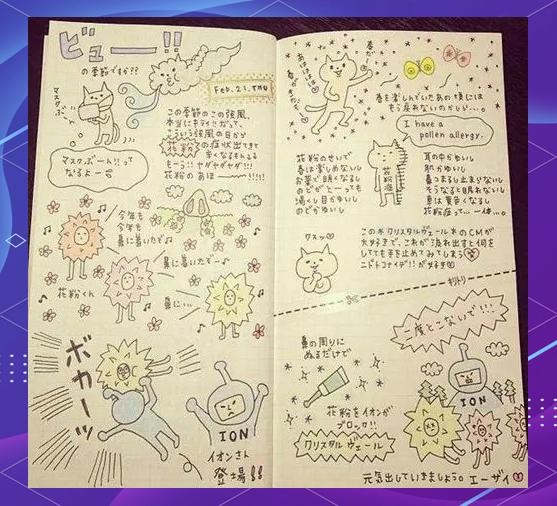 ビュー!!
の季節ですか??
Feb. 21. THU
マスクぶ〜
マスクボーン!!って
なるよー
この季節のこの強風、
本当にキライ!!だって、
こういう強風の日から
花粉の症状出てきて
辛くなるもんねる
もーう!!ヤダヤダヤダ!!!
花粉のあほ――!!!!
今年も
今年も
鼻に着いたぞ♪
鼻に着いたぞ〜♪
鼻に…
花粉くん
ボカーッ
ION
イオンさん
登場!!
春だ
あはははは
春がきた
春を楽しんでいたあの頃には
もう戻れないのかしら…。
I have a
pollen allergy.
花粉症
花粉のせいで
春は楽しめないし
お薬で眠くなるし
のどがとーっても
渇くし目かゆいし
のどかゆいし
耳の中かゆいし
肌かゆいし
鼻つまるし止まらないし
そうなると眠れないし
車は黄色くなるし
花粉症って…一体…。
クスッ
このクリスタルヴェールのCMが
大好きで、これが流れ出すと何を
してても手を止めてみてしまう
ニドトコナイデ!!が好き
キリトリ
鼻の周りに
ぬるだけで
花粉をイオンが
ブロック!!
クリスタル ヴェール
二度とこないで!!!
ION
元気出していきましょう。エーザイ